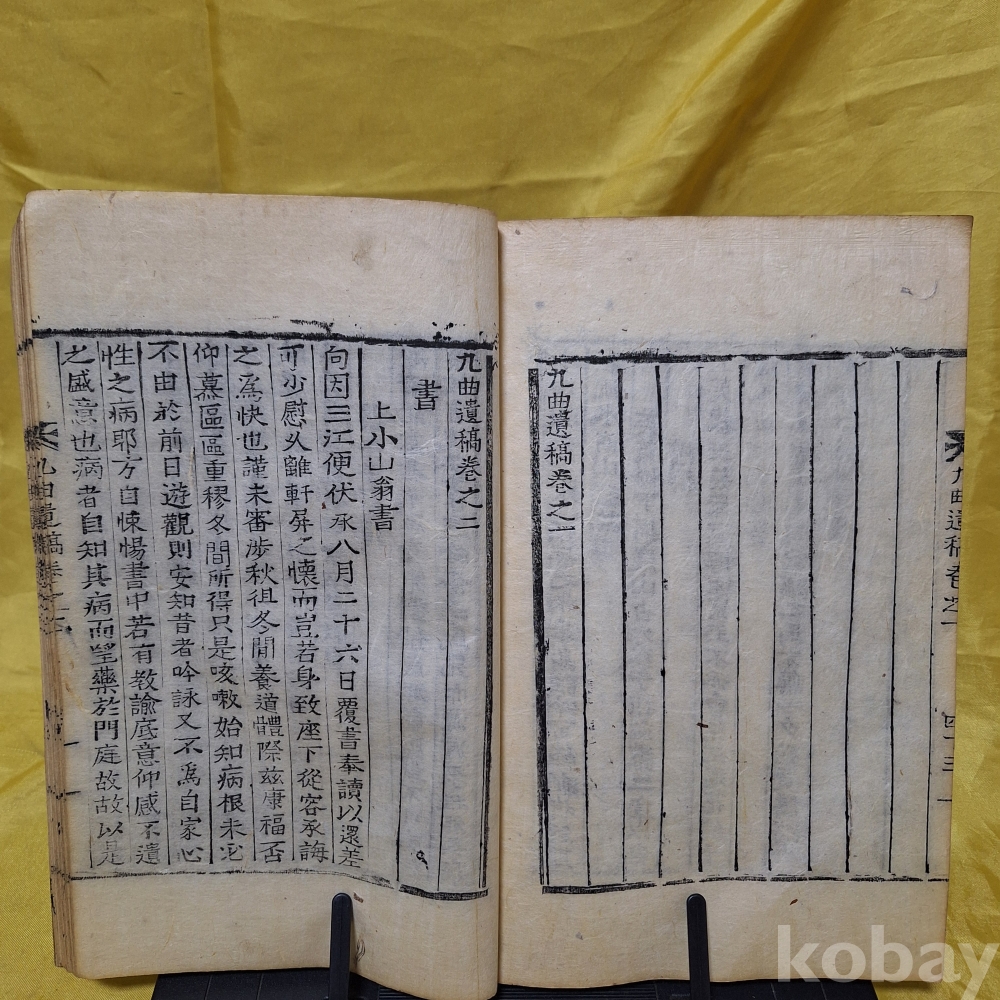 九曲遺稿卷之一
九曲遺稿卷之一
四十三
九曲遺稿卷之二
書
上小山翁書
向因三江便伏承八月二十六日覆書奉讀以還差
可少慰久離軒屛之懷而豈若身致座下從容承誨
之爲快也謹未審涉秋徂冬閒養道體際玆康福否
仰慕區區重穆冬間所得只是咳嗽始知病根未必
不由於前日遊觀則安知昔者吟詠又不爲自家心
性之病耶方自悚惕書中若有敎諭底意仰感不遺
之盛意也病者自知其病而望藥於門庭故故以是
九曲遺稿卷之二
kobay